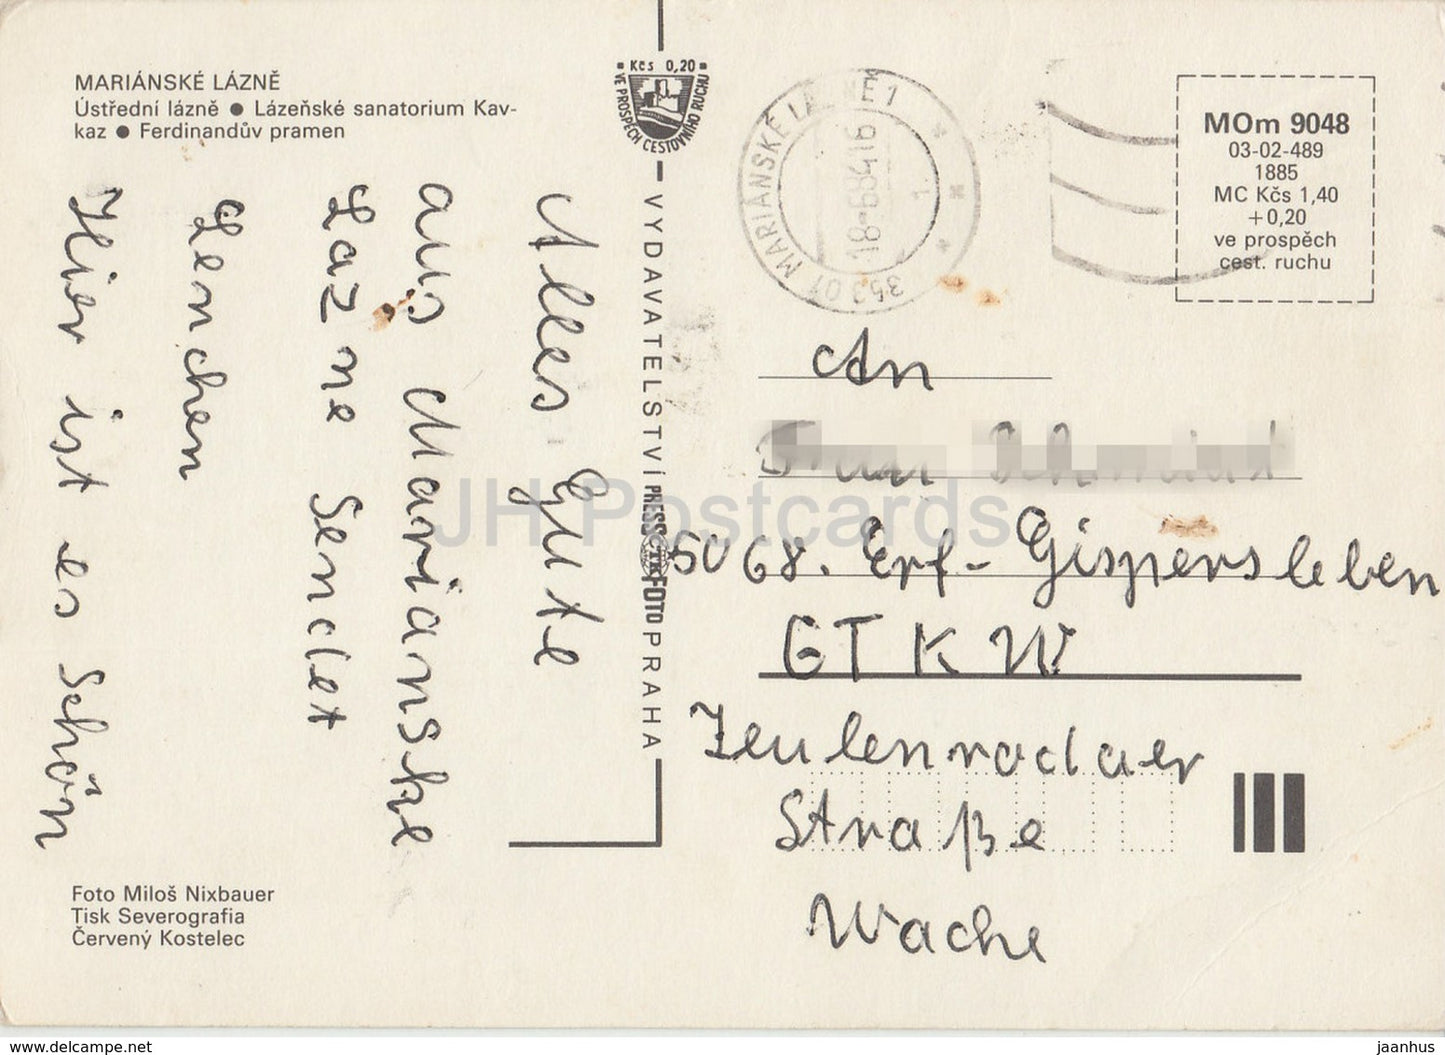 MARIÁNSKÉ LÁZNĚ
Ústřední lázně ● Lázeňské sanatorium Kav-
kaz ● Ferdinandův pramen
Kčs 0,20
VE PROSPĚCH CESTOVNÍHO RUCHU
353 01 MARIÁNSKÉ LÁZNĚ 1
MOm 9048
03-02-489
1885
MC Kčs 1,40
+0,20
ve prospěch
cest. ruchu
Alles Gute
aus Marianske
Lazne Sendet
Lenchen
Hier ist es Schön
VYDAVATELSTVÍ PRESSFOTO PRAHA
ČTK
An
5068. Erf- Gispersleben
GTKW
Zeulenrodaer
Straße
Wache
Foto Miloš Nixbauer
Tisk Severografia
Červený Kostelec
JH Postcards
www.delcampe.net
jaanhus